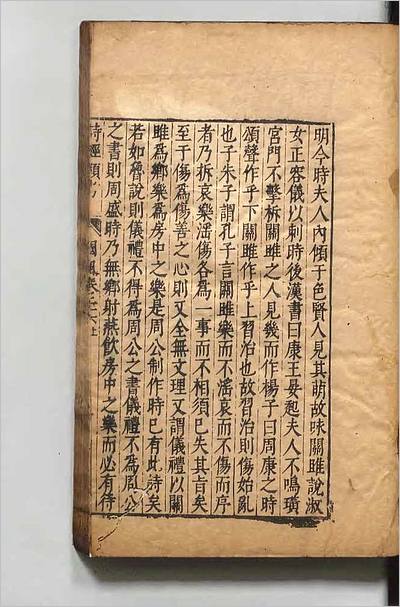 明今時夫人內傾于色賢人見其萌故咏關雎說淑
女正容儀以刺時後漢書曰康王晏起夫人不鳴璜
宮門不擊柝關雎之人見幾而作楊子曰周康之時
頌聲作乎下關雎作乎上習治也故習治則傷始亂
也子朱子謂孔子言關雎樂而不滛哀而不傷而序
者乃拆哀樂滛傷各爲一事而不相須已失其旨矣
至于傷爲傷善之心則又全無文理又謂儀禮以關
雎爲鄉樂爲房中之樂是周公制作時已有此詩矣
若如魯說則儀禮不得爲周公之書儀禮不爲周公
之書則周盛時乃無鄉射燕飮房中之樂而必有待
詩經 國風卷之一 上